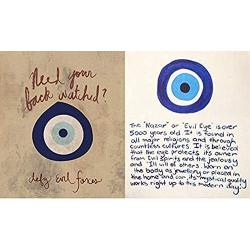 Need your
back watched?
defy Evil forces
The "Nazar" or 'Evil Eye' is over
5000 years old. It is found in
all major religions and through
countless cultures. It is believed
that the eye protects its owner
from Evil Spirits and the jealousy
and 'Ill will of others. Worn on
the body as jewellery or placed in
the home and car, its mystical quality
works right up to this modern day.